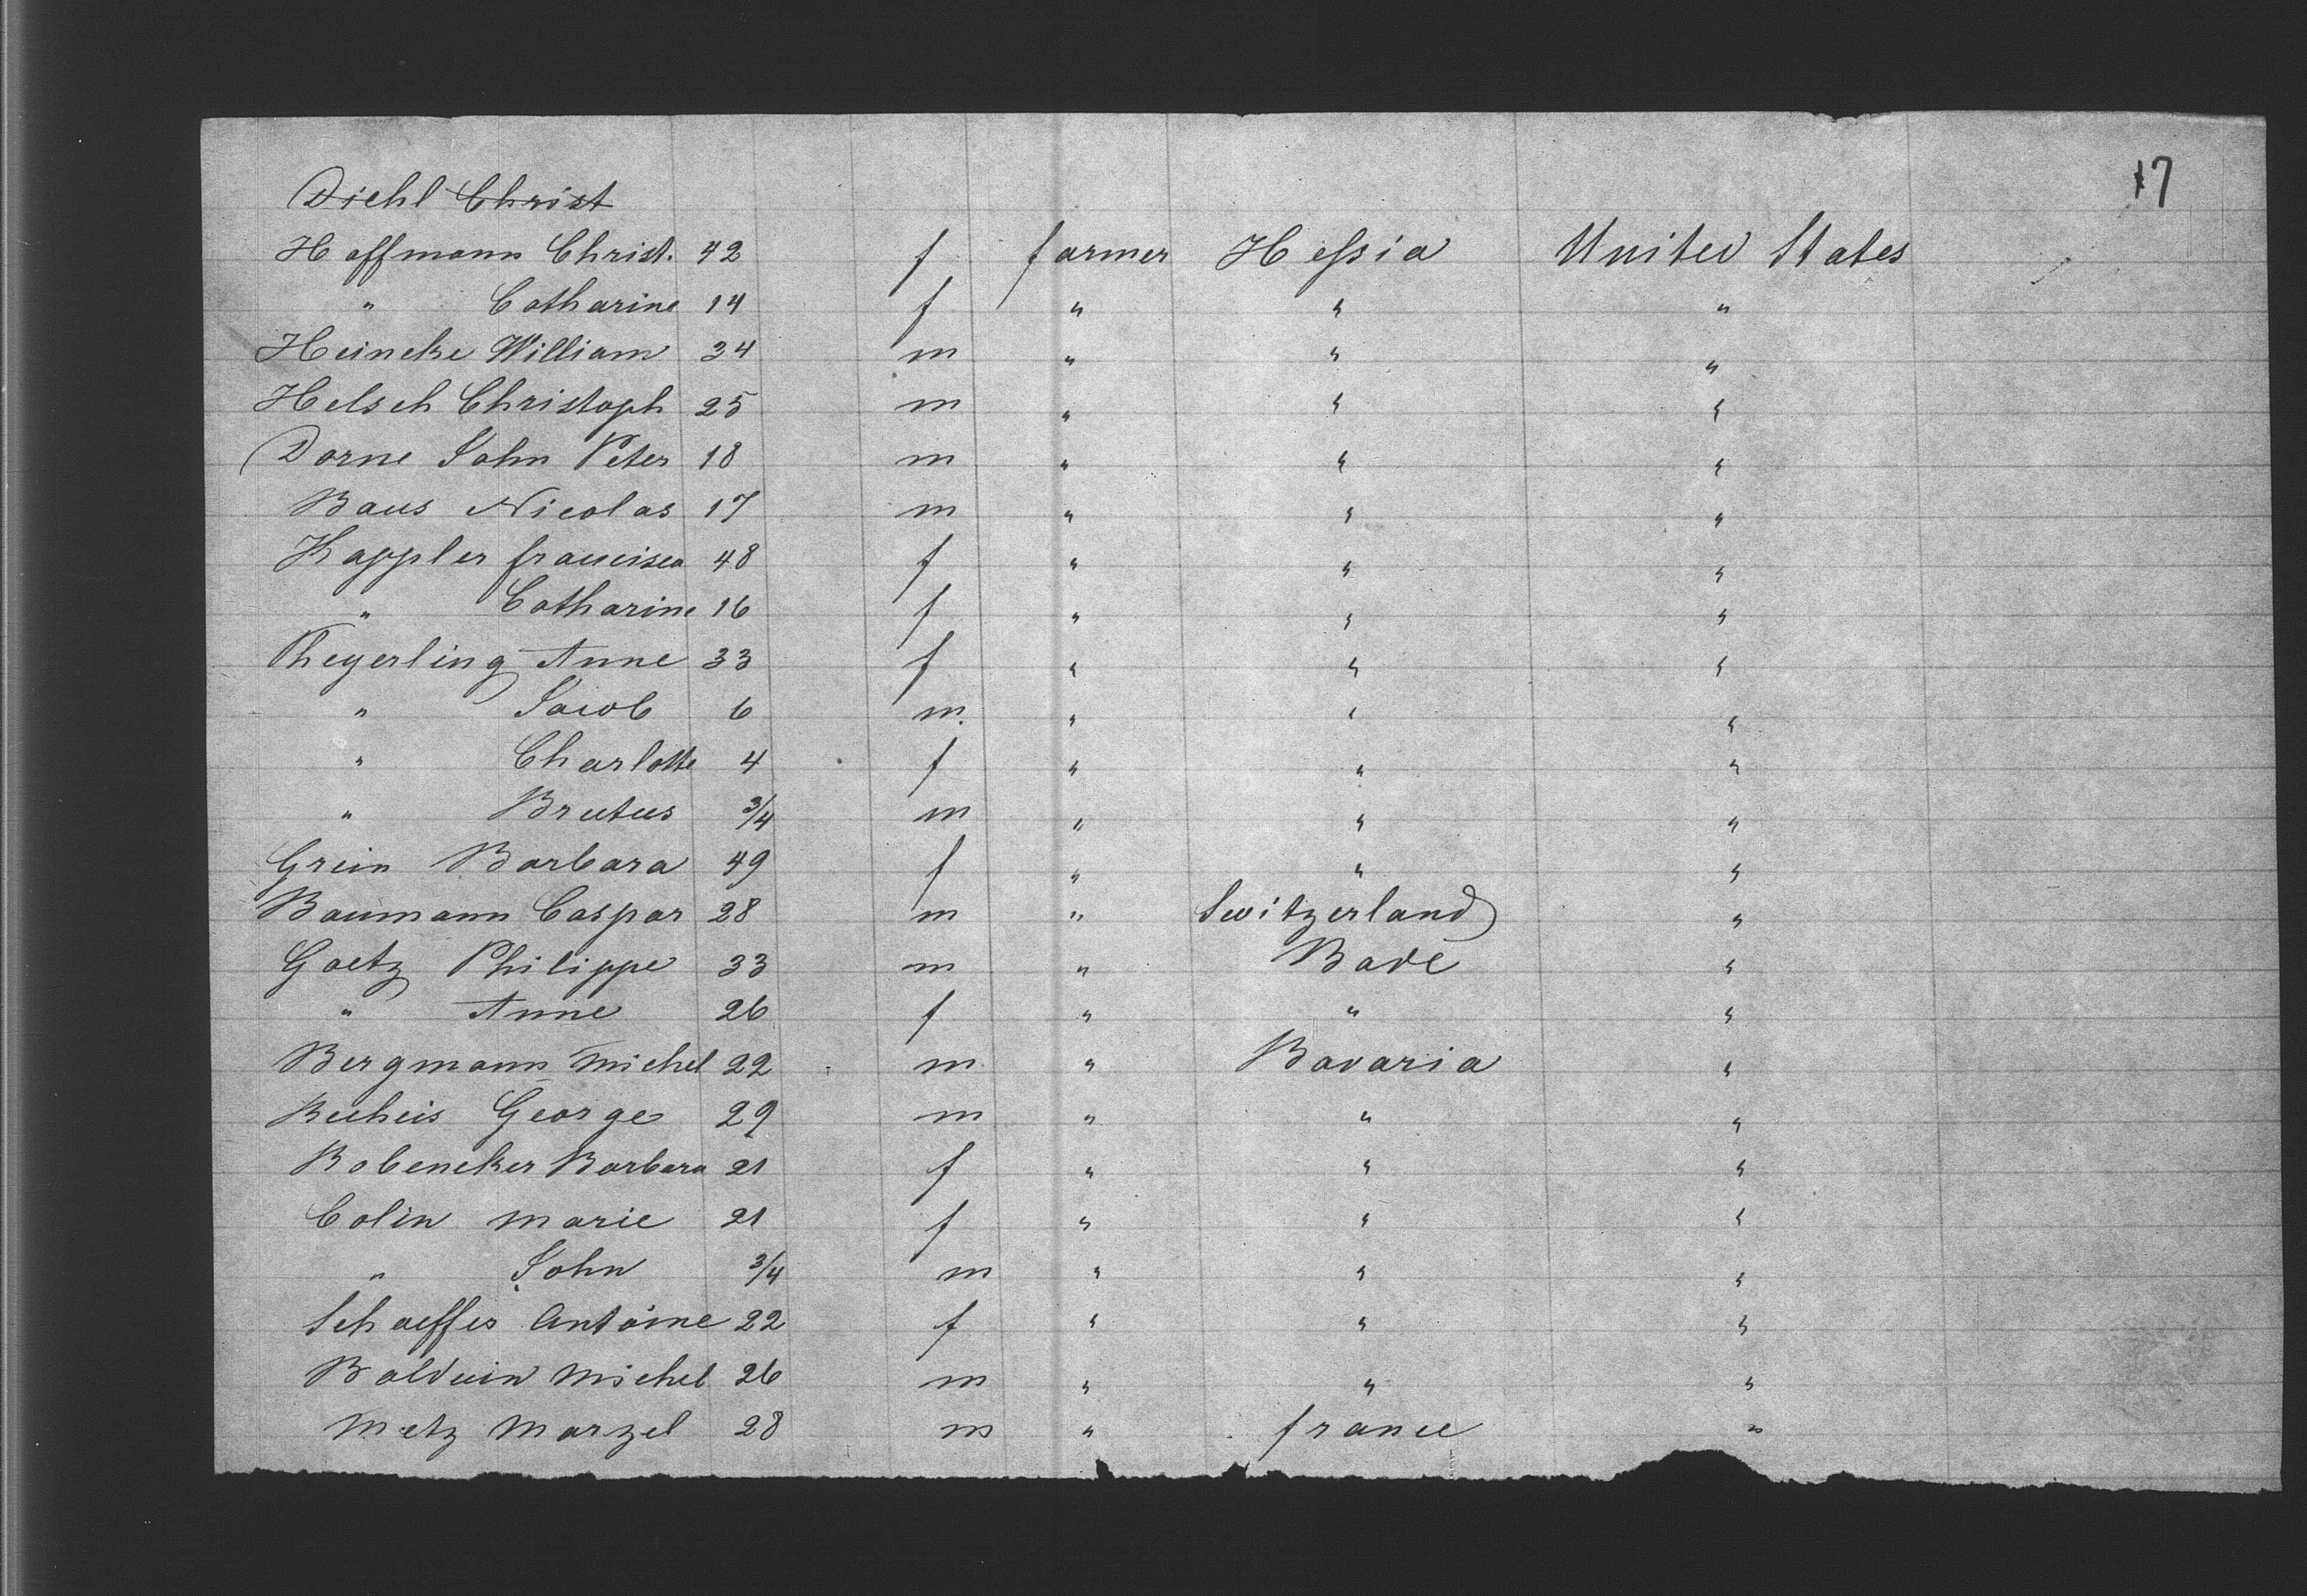 17
Diehl Christ
Hoffmann Christ. 42 f farmer Hessia United States
" Catharine 14 f " " "
Heincke William 34 m " " "
Helsch Christoph 25 m " " "
Dorne John Peter 18 m " " "
Baus Nicolas 17 m " " "
Kappler francisca 48 f " " "
" Catharine 16 f " " "
Pheyerling Anne 33 f " " "
" Jacob 6 m " " "
" Charlotte 4 f " " "
" Brutus 3/4 m " " "
Grein Barbara 49 f " " "
Baumann Caspar 28 m " Switzerland "
Goetz Philippe 33 m " Bade "
" Anne 26 f " " "
Bergmann Michel 22 m " Bavaria "
George 29 m " " "
Bobencker Barbara 21 f " " "
Colin Marie 21 f " " "
" John 3/4 m " " "
Antoine 22 f " " "
Balduin Michel 26 m " " "
Metz Marzel 28 m " france "